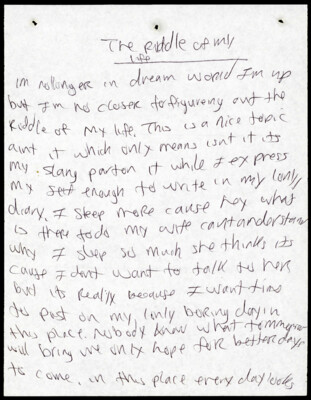 The Riddle of my
life
Im nolonger in dream world I'm up
but I'm no closer to figureny out the
Riddle of my life. This is a nice topic
aint it which only means isnt it its
my slang parton it while I express
my self enough to write in my lonly
diary. I sleep more cause hey what
is there to do my wife cant understand
why I sleep so much she thinks its
cause I dont want to talk to her
but its Really because I want time
to post on my lonly boring day in
this place. Nobody know what tommorrow
will bring we only hope for better days
to come, in this place every day looks